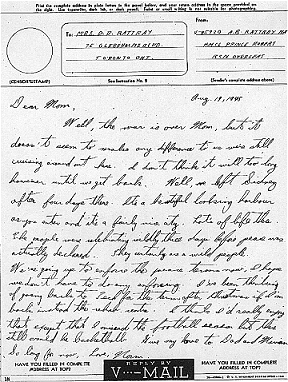 Print the complete address in plain letters in the panel below, and your return address in the space provided on the right. Use typewriter, dark ink, or dark pencil. Faint or small writing is not suitable for photographing.
To:
From:
MRS D. D. RATTRAY
75 GLENHOLME BLVD.
TORONTO ONT.
A B RATTRAY
HMCS PRINCE ROBERT
(CENSOR'S STAMP)
See Instruction No. 2
(Sender's complete address above)
Aug. 19, 1945
Dear Mom,
Well, the war is over Mom, but it
doesn't seem to make any difference to us were still
cruising around out here. I don't think it will too long
however, until we get back. Well, we left Sidney
after four days there. Its a beutiful looking harbour
as you enter and its a fairly nice city. Lots of life
The people were celebrating wildly three days before peace was
actually declared. They certainly are a wild people.
We're going up to enforce the peace terms now, I hope
we don't have to do any enforcing. I've been thinking
of going back to Tech for the term after Christmas if I'm
back, instead of the whole. I think I'd really enjoy
that except that I missed the football season but there
still would be basketball. Give my love to Dad and
So long for now, Love, Norm
HAVE YOU FILLED IN COMPLETE
ADDRESS AT TOP?
REPLY BY
V···—MAIL
HAVE YOU FILLED IN COMPLETE
ADDRESS AT TOP?